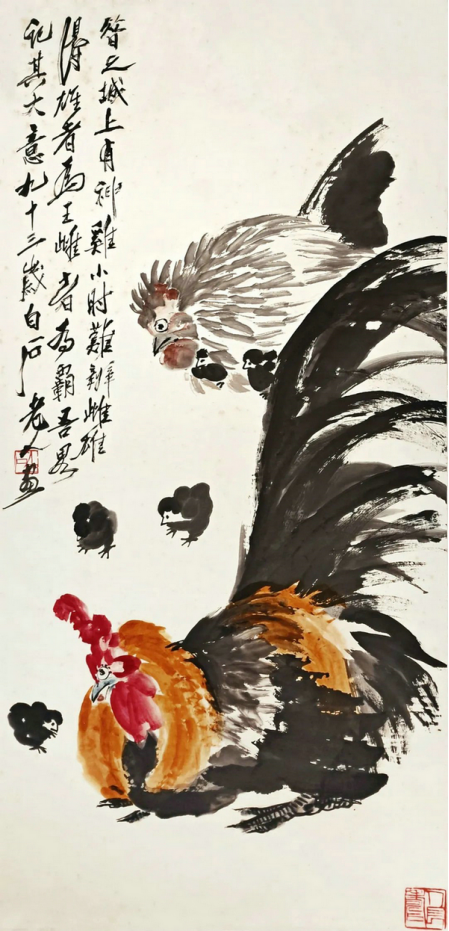 之城上有神雞小时難辨雌雄
得雄者為王雌者為霸吾畧
記其大意九十三歲白石老人畫